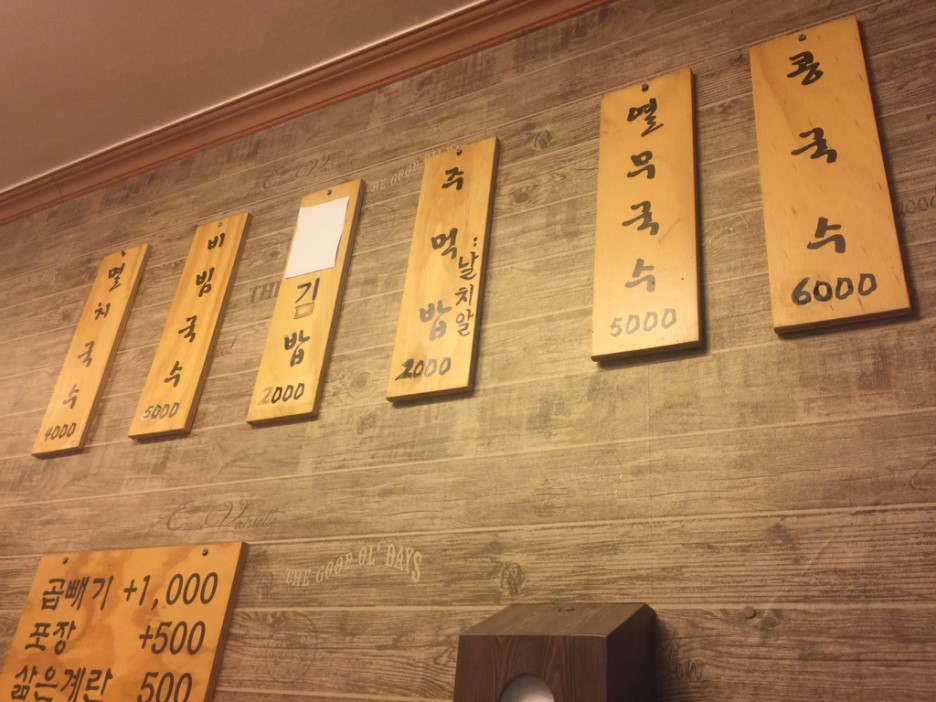 멸치국수
4000
비빔국수
5000
김밥
2000
주먹밥
:날치알
2000
열무국수
5000
콩국수
6000
THE GOOD OL' DAYS
곱빼기 +1,000
포장 +500
삶은계란 500